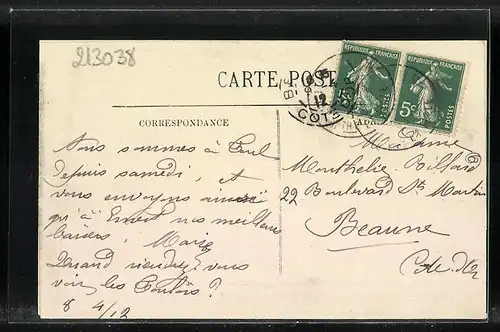 213038
CARTE POST
REPUBLIQUE FRANÇAISE
REPUBLIQUE FRANÇAISE
5c
POSTES
5c
POSTES
12
COTE D'OR
CORRESPONDANCE
Madame
Nous sommes à
Monthelie Billard
depuis samedi, et
22 Boulevard St Martin
vous envoyons ainsi
qu'à Ernest nos meilleurs
Beaune
baisers, Marie
Cote d'Or
Quand viendrez vous
voir les
8 4/12